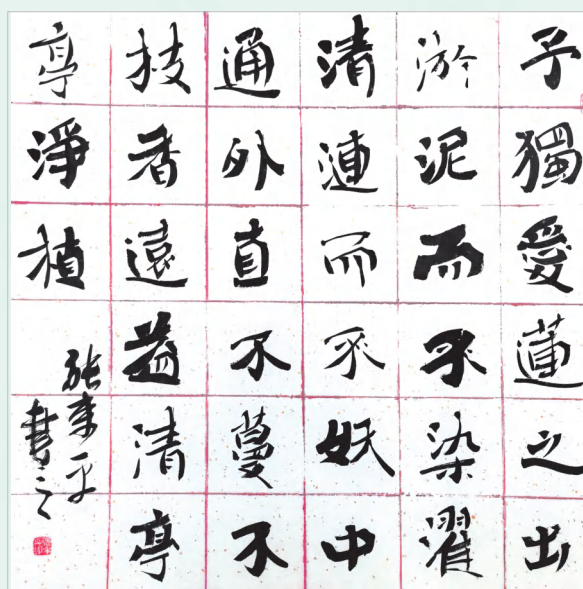 予獨愛蓮之出
淤泥而不染濯
清漣而不妖中
通外直不蔓不
枝香遠益清亭
亭淨植
張平
書之